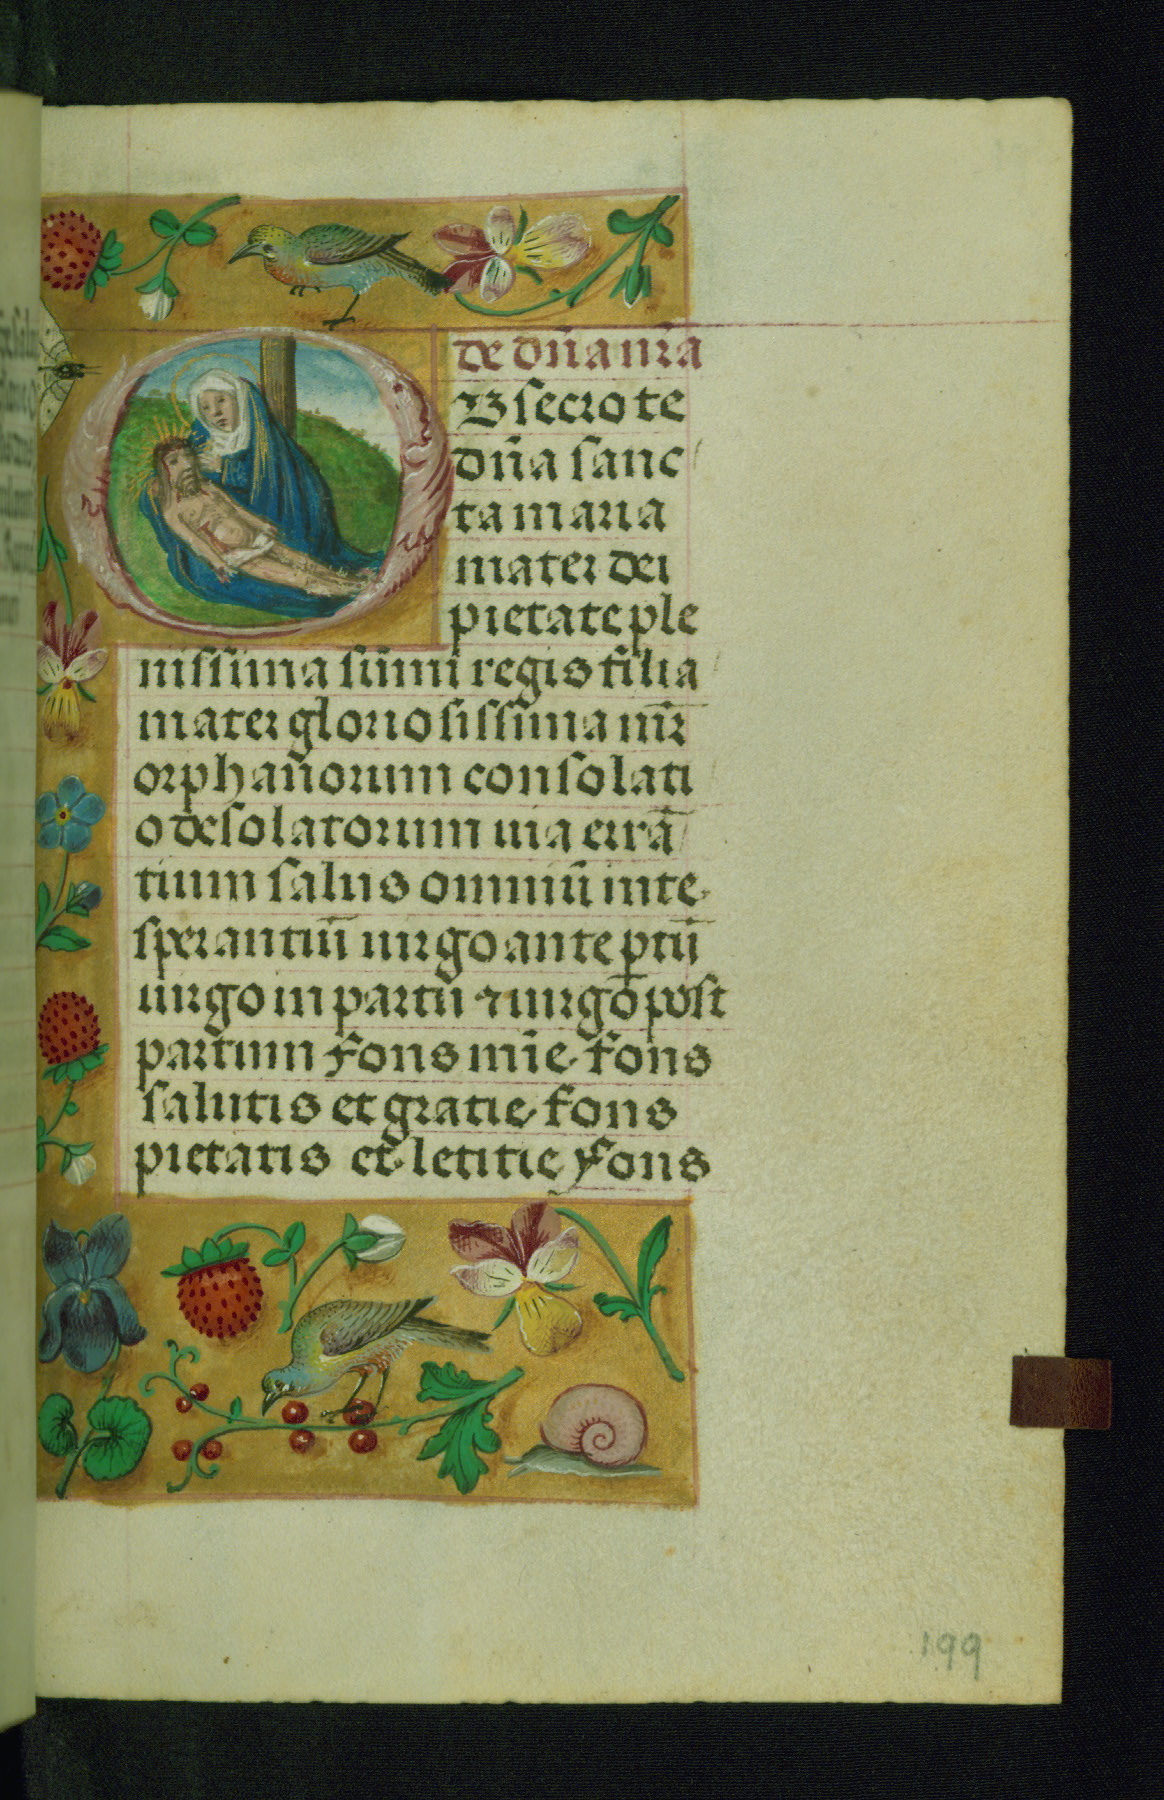 de dn̄a nr̄a
Bsecro te
dn̄a sanc
ta maria
mater dei
pietate ple
nissima sūmi regis filia
mater gloriosissima mr̄
orphanorum consolati
o desolatorum uia errā
tium salus omniū in te
sperantiū uirgo ante ptū
uirgo in partū ⁊ uirgo post
partum fons mīe fons
salutis et gratie fons
pietatis et letitie fons
199